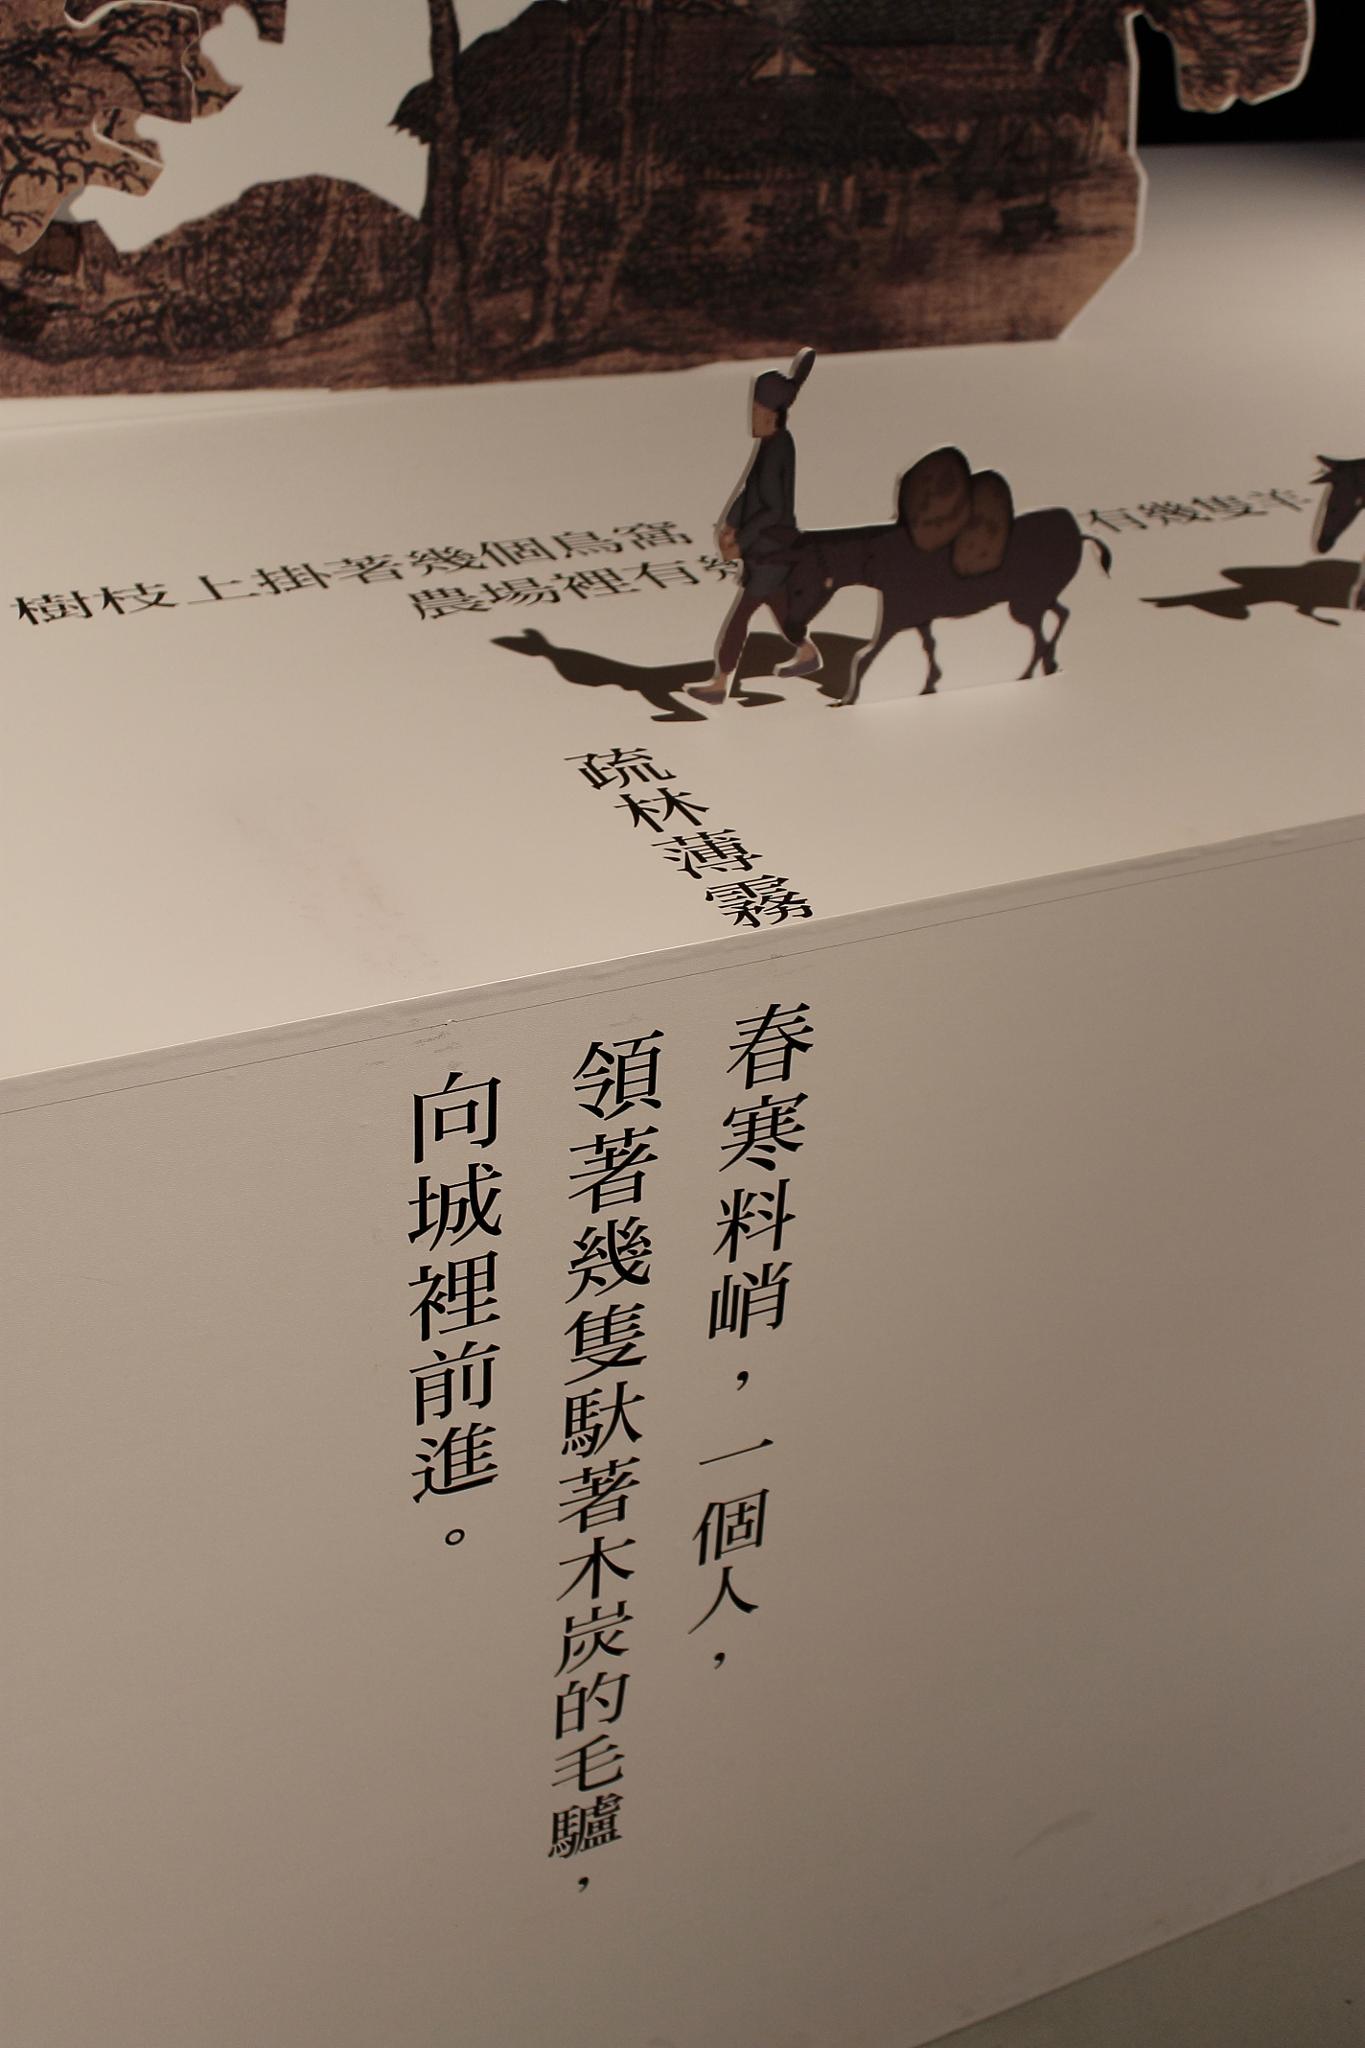 樹枝上掛著幾個鳥窩
農場裡有幾
有幾隻羊
疏林薄霧
春寒料峭，一個人，
領著幾隻馱著木炭的毛驢，
向城裡前進。